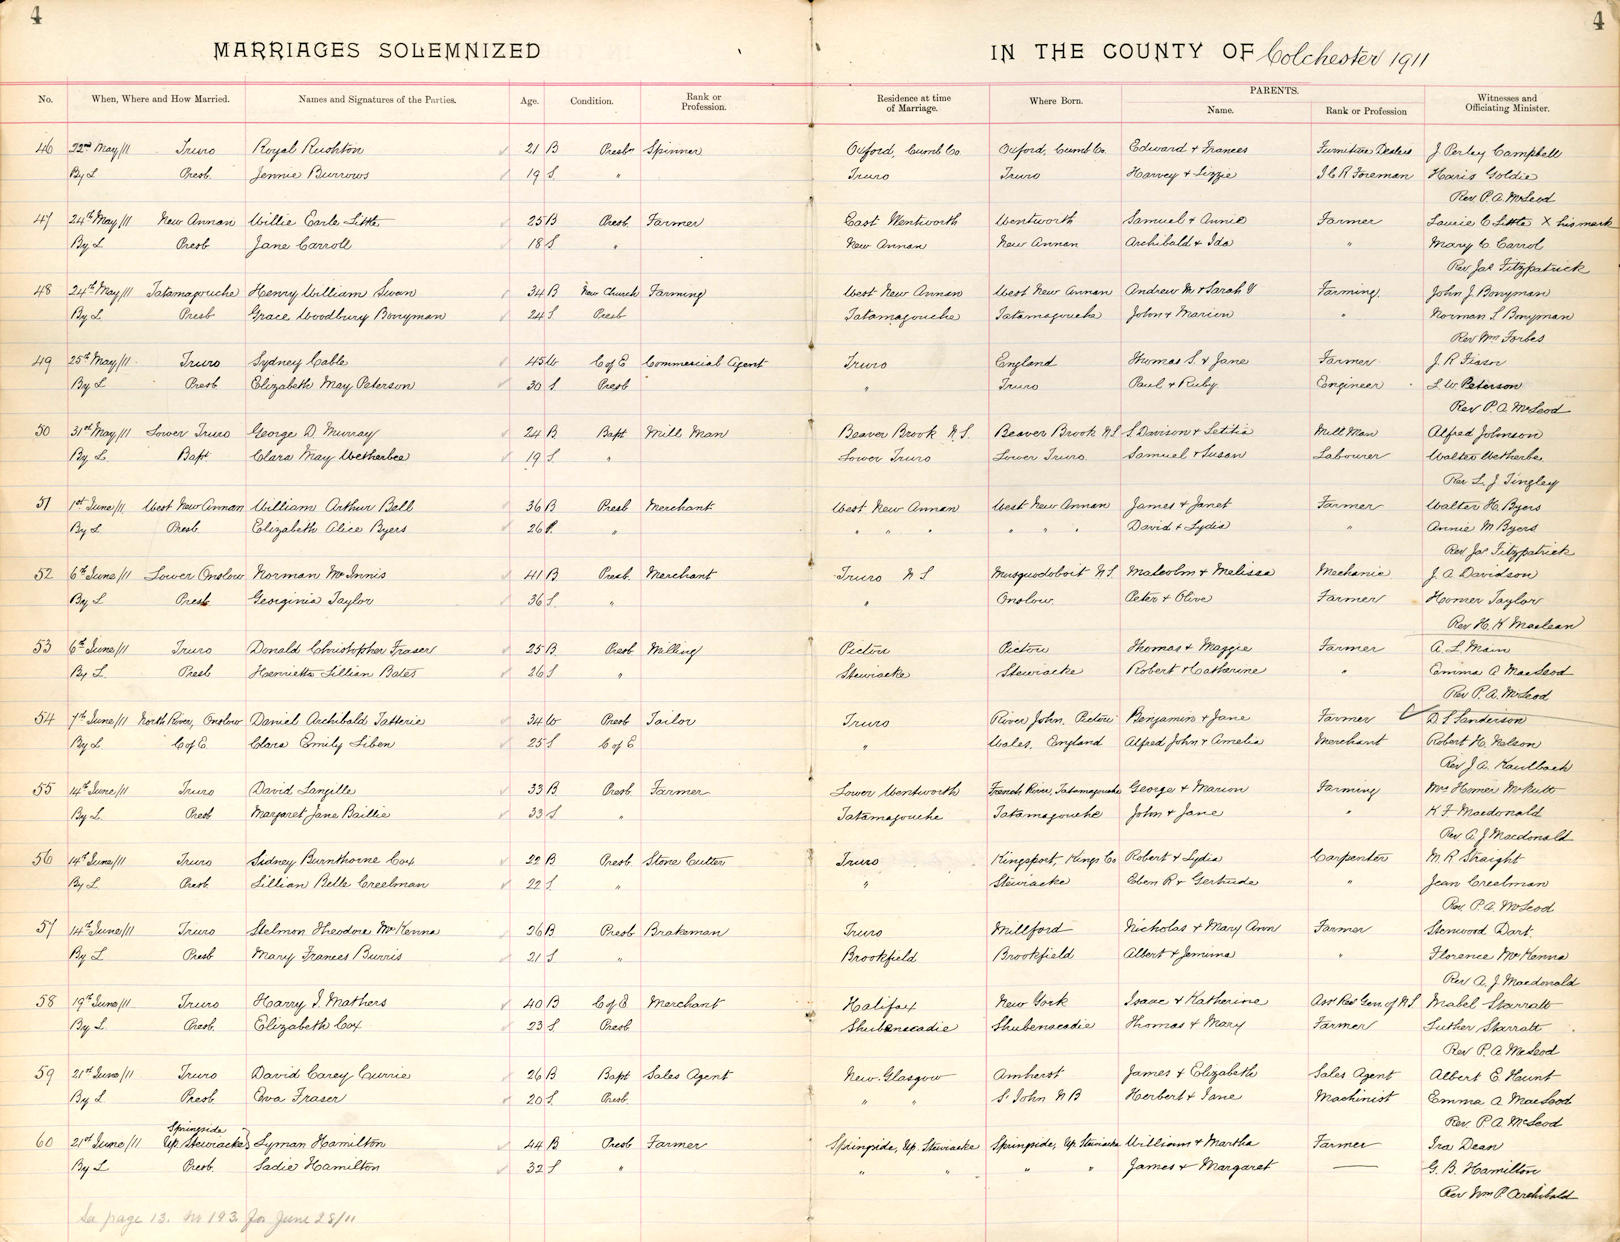 4
4
MARRIAGES SOLEMNIZED IN THE COUNTY OF Colchester 1911
No. When, Where and How Married. Names and Signatures of the Parties. Age. Condition. Rank or Profession. Residence at time of Marriage. Where Born. PARENTS. Name. Rank or Profession Witnesses and Officiating Minister.
46 22nd May/11 Truro Royal Rushton 21 B Presbn Spinner Oxford, Cumb Co. Oxford, Cumb Co. Edward & Frances Furniture Dealers J. Perley Campbell
By L Presb. Jennie Burrows 19 S. " Truro Truro Harvey & Lizzie I C R Foreman Haris Goldie
Rev P. A. McLeod
47 24th May/11 New Annan Willie Earle Little 25 B Presb. Farmer East Wentworth Wentworth Samuel & Annie Farmer Laurie C Little X his mark
By L. Presb Jane Carroll 18 S " New Annan New Annan Archibald & Ida " Mary C Carrol
Rev Jas Fitzpatrick
48 24th May/11 Tatamagouche Henry William Swan 34 B New Church Farming West New Annan West New Annan Andrew M & Sarah V Farming. John J. Bonyman
By L. Presb Grace Woodbury Bonyman 24 S Presb Tatamagouche Tatamagouche John & Marion " Norman S Bonyman
Rev Wm Forbes
49 25th May/11 Truro Sydney Cable 45 W C of E Commercial Agent Truro England Thomas S. & Jane Farmer J. R Fraser
By L Presb. Elizabeth May Peterson 30 S. Presb " Truro Paul & Ruby Engineer L W Peterson
Rev P. A. McLeod
50 31st May/11 Lower Truro George D. Murray 24 B Bapt Mill Man Beaver Brook N.S. Beaver Brook N.S S Davison & Letitia Mill Man Alfred Johnson
By L. Bapt. Clara May Wetherbee 19 S. " Lower Truro Lower Truro Samuel & Susan Labourer Walter Wetherbe
Rev L. J Tingley
51 1st June/11 West New Annan William Arthur Bell 36 B Presb Merchant West New Annan West New Annan James & Janet Farmer Walter H. Byers
By L Presb. Elizabeth Alice Byers 26 S. " " " " " " " David & Lydia " Annie M Byers
Rev Jas Fitzpatrick
52 6th June/11 Lower Onslow Norman McInnis 41 B Presb. Merchant Truro N S Musquodoboit N.S. Malcolm & Melissa Mechanic J. A Davidson
By L Presb. Georginia Taylor 36 S. " " Onslow Peter & Olive Farmer Homer Taylor
Rev H. K Maclean
53 6th June/11 Truro Donald Christopher Fraser 25 B Presb Milling Pictou Pictou Thomas & Maggie Farmer A. L. Main
By L. Presb Henrietta Lillian Bates 26 S " Stewiacke Stewiacke Robert & Catherine " Emma A MacLeod
Rev P. A. McLeod
54 7th June/11 North River, Onslow Daniel Archibald Tatterie 34 W Presb Tailor Truro River John, Pictou Benjamin & Jane Farmer D. S Sanderson
By L. C of E. Clara Emily Liben 25 S C of E " Wales, England Alfred John & Amelia Merchant Robert H. Nelson
Rev J A. Kaulbach
55 14th June/11 Truro David Langille 33 B. Presb. Farmer Lower Wentworth French River, Tatamagouche George & Marion Farming Mrs Homer McNutt
By L. Presb Margaret Jane Baillie 33 S " Tatamagouche Tatamagouche John & Jane " K F Macdonald
Rev A. J Macdonald
56 14th June/11 Truro Sidney Burnthorne Cox 22 B Presb Stone Cutter Truro Kingsport, Kings Co Robert & Lydia Carpenter M R Straight
By L Presb. Lillian Belle Creelman 22 S. " " Stewiacke Eben R & Gertrude " Jean Creelman
Rev. P. A. McLeod
57 14th June/11 Truro Stelmon Theodore McKenna 26 B Presb Brakeman Truro Millford Nicholas & Mary Ann Farmer Stenwood Dart.
By L Presb Mary Frances Burris 21 S " Brookfield Brookfield Albert & Jemima " Florence McKenna
Rev A. J. Macdonald
58 19th June/11 Truro Harry I. Mathers 40 B C of E Merchant Halifax New York Isaac & Katherine Ass Rec Gen. of N.S Mabel Starratt
By L. Presb. Elizabeth Cox 23 S. Presb Shubenacadie Shubenacadie Thomas & Mary Farmer Luther Starratt
Rev P. A McLeod
59 21st June/11 Truro David Carey Currie 26 B Bapt Sales Agent New Glasgow Amherst James & Elizabeth Sales Agent Albert E. Haunt
By L Presb. Eva Fraser 20 S. Presb. " " St John N B Herbert & Jane Machinist Emma A MacLeod
Rev P. A McLeod
60 21st June/11 Springside Up. Stewiacke Lyman Hamilton 44 B Presb Farmer Springside, Up. Stewiacke Springside, Up. Stewiacke William & Martha Farmer Ira Dean
By L Presb. Sadie Hamilton 32 S " " " " " James & Margaret — G. B. Hamilton
Rev Wm P. Archibald
See page 13. No 193 for June 28/11